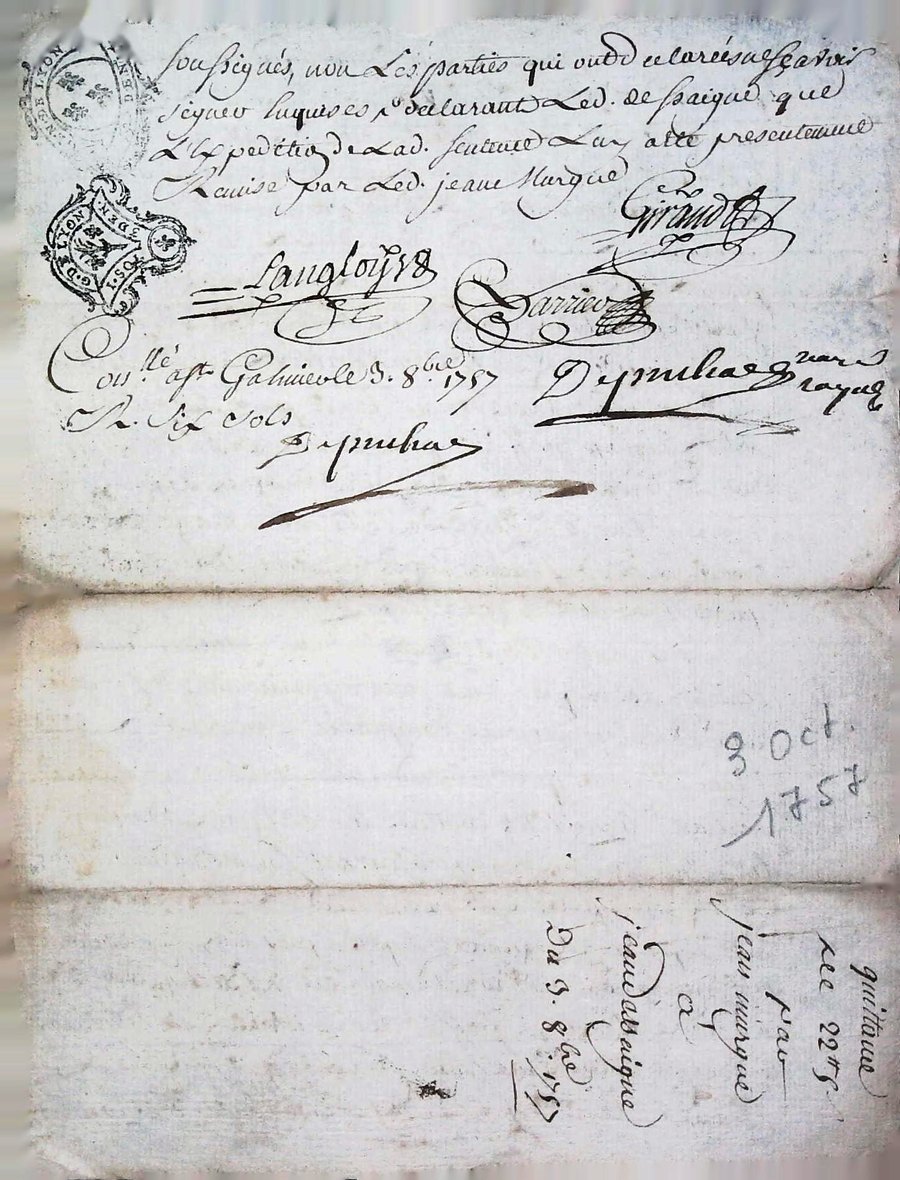 soussignés, non Les parties qui ont declaré ne scavoir
signer enquises declarant Led. dessaigne que
L'Expedition de Lad. sentence Luy a été presentement
Remise par Led. jean Murgue
Giraud
Langloys
Darrieu
Con.llé à St Galmier le 3. 8.bre 1757
R. six sols
G. DE LYON
2 DEN.
3 Oct.
1757
quittance
de 22
par
jean murgue
a
jean dassaigne
Du 3. 8bre 1757